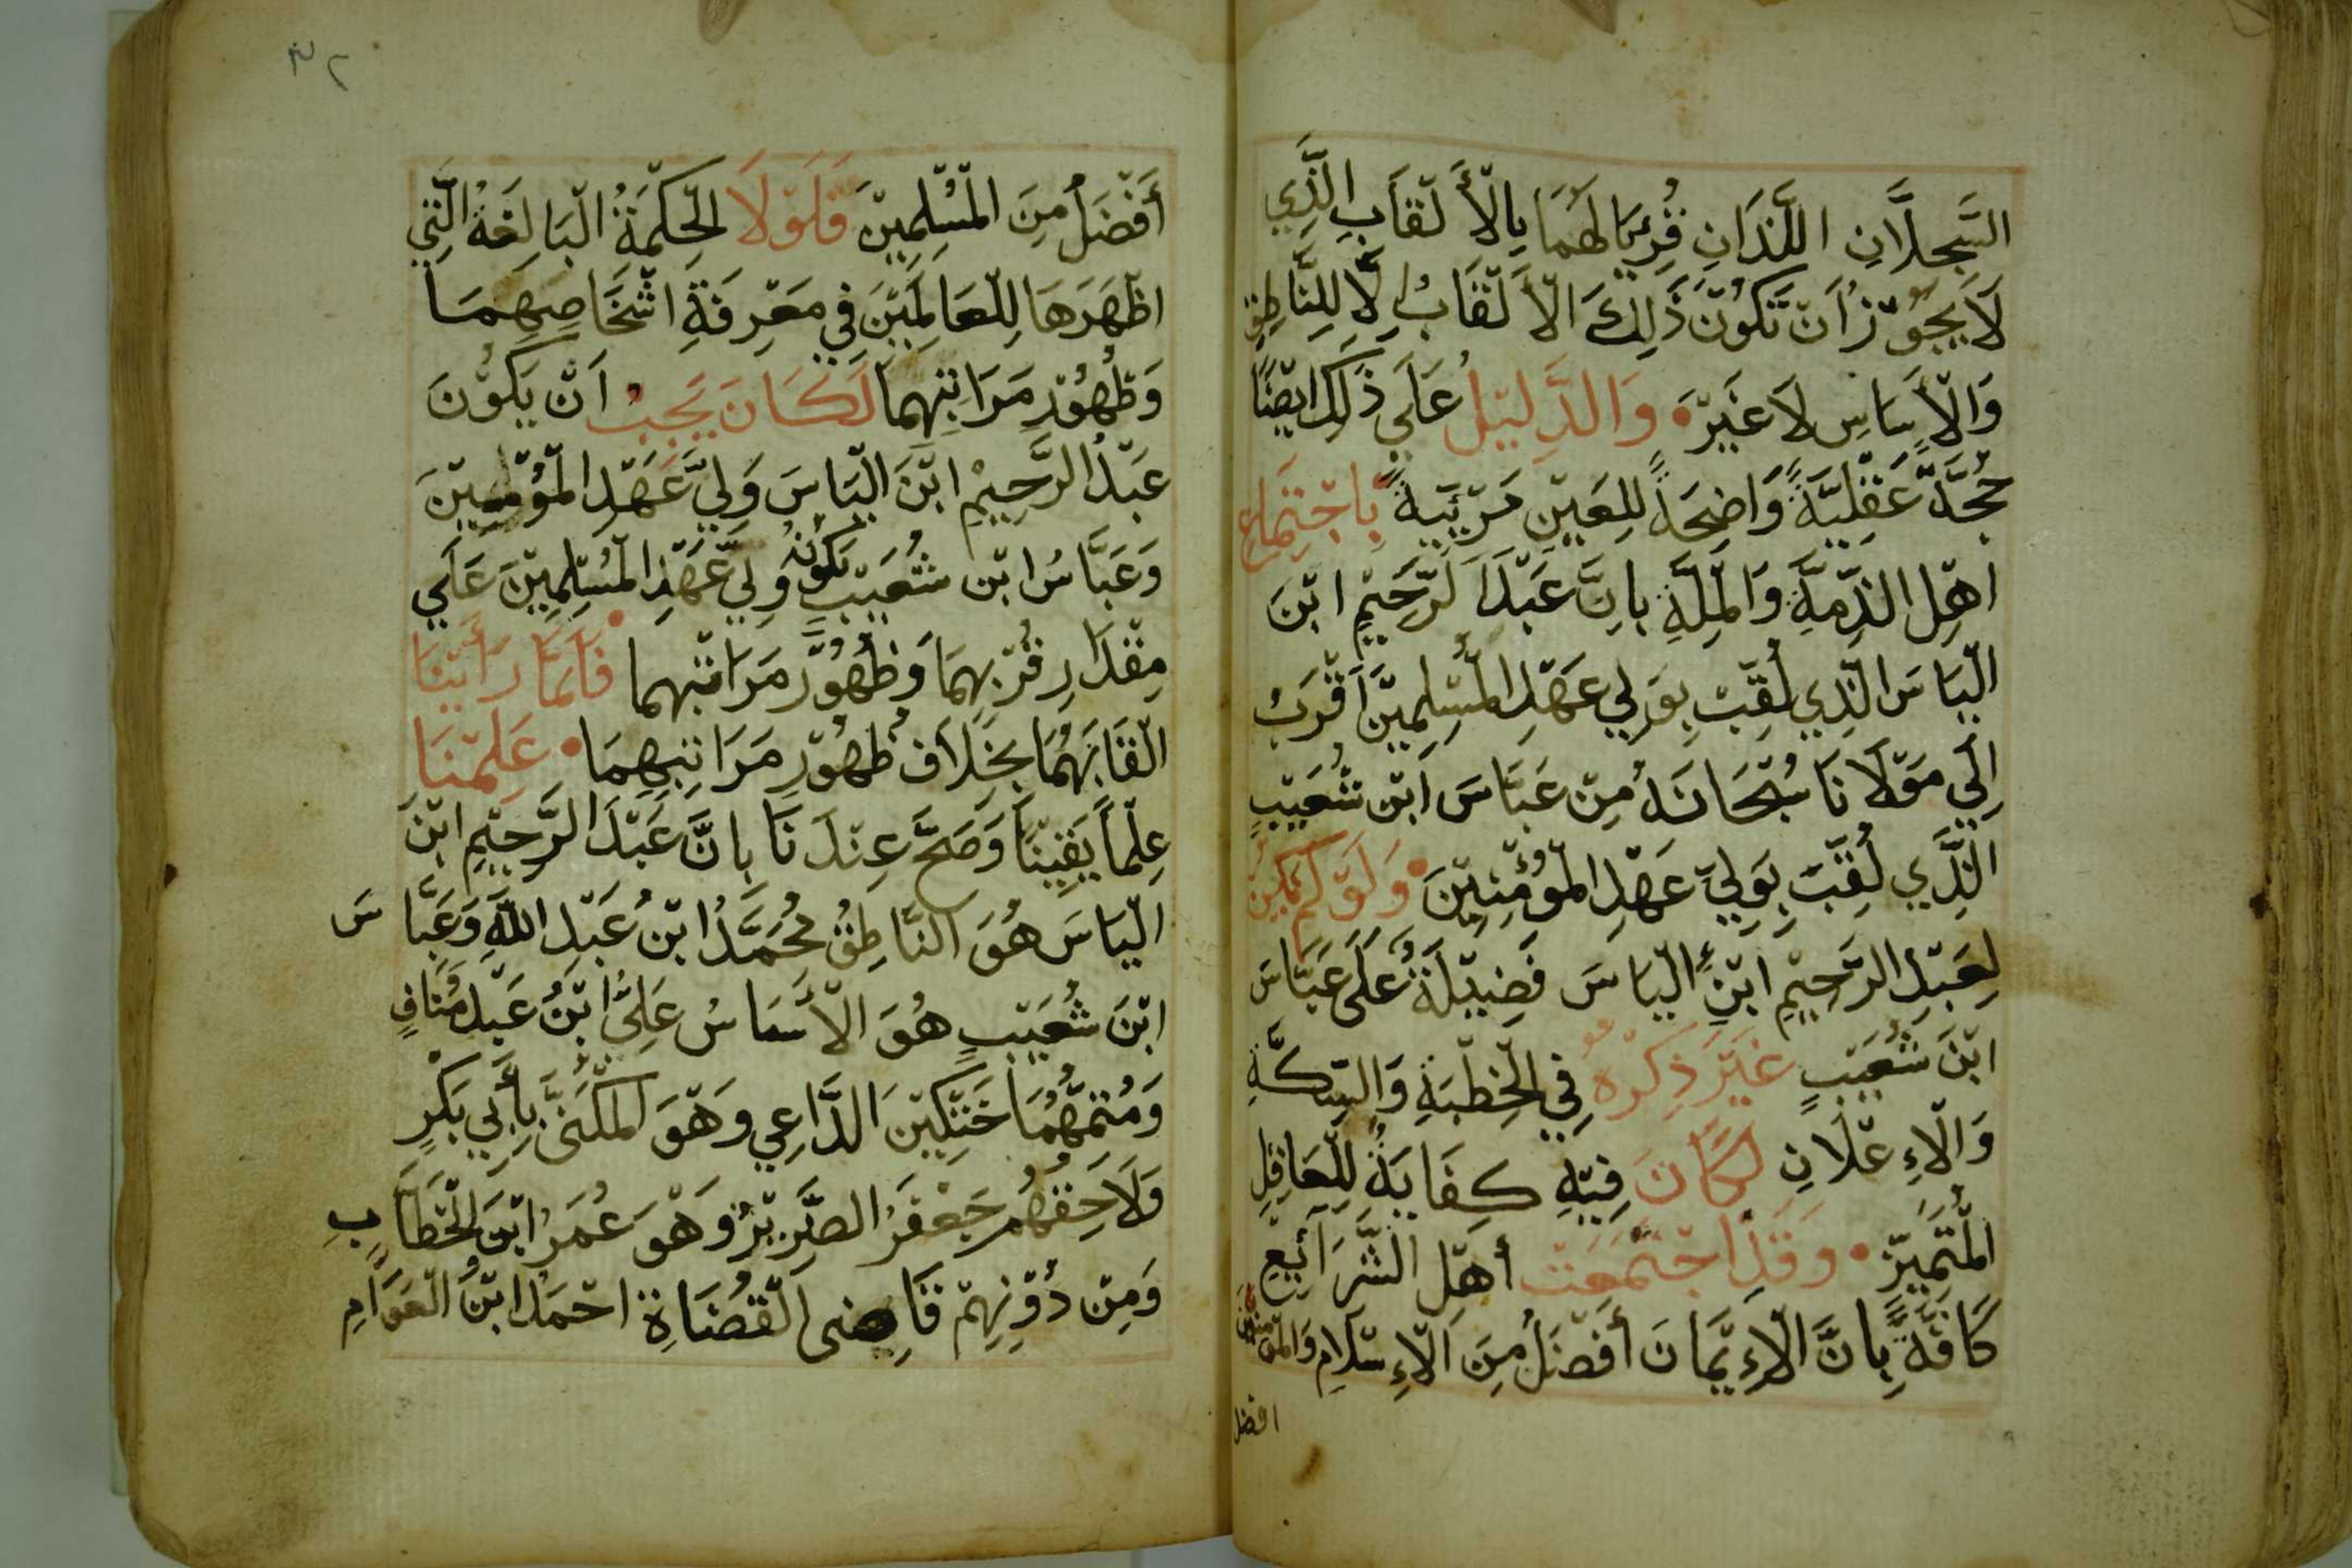 السَّجِلَّانِ اللَّذَانِ قُرِئَا لَهُمَا بِالْأَلْقَابِ الَّذِي
لَا يَجُوْزُ اَنْ تَكُوْنَ ذَلِكَ الْأَلْقَابُ اِلَّا لِلنَّاطِقِ
وَالْأَسَاسِ لَا غَيْرَ • وَالدَّلِيْلُ عَلَي ذَلِكَ ايْضًا
حُجَّةً عَقْلِيَّةً وَاضِحَةً لِلعَيْنِ مَرْئِيَّةً بِاجْتِمَاعِ
اهْلِ الذِّمَّةِ وَالْمِلَّةِ بِانَّ عَبْدَ الرَّحِيْمِ ابْنَ
الْيَاسَ الَّذِي لُقِّبَ بِوَلِي عَهْدِ الْمُسْلِمِيْنَ اَقْرَبُ
اِلَي مَوْلَانَا سُبْحَانَهُ مِنْ عَبَّاسَ ابْنِ شُعَيْبٍ
الَّذِي لُقِّبَ بِوَلِيِّ عَهْدِ الْمُؤْمِنِيْنَ • وَلَوْ لَمْ يَكُنْ
لِعَبْدِ الرَّحِيْمِ ابْنِ الْيَاسَ فَضِيْلَةٌ عَلَى عَبَّاسَ
ابْنَ شُعَيْبٍ غَيْرَ ذِكْرُهُ فِي الْخِطْبَةِ وَالسِّكَّةِ
وَالْاِعْلَانِ لَكَانَ فِيْهِ كِفَايَةٌ لِلْعَاقِلِ
الْمُتَمَيِّزِ • وَقَدِ اجْتَمَعَتْ أَهْلُ الشَّرَائِعِ
كَافَّةً بِانَّ الْاِيْمَانَ أَفْضَلُ مِنَ الْاِسْلَامِ وَالْمُؤْمِنِيْنَ
افضل
٣٢
أَفْضَلُ مِنَ الْمُسْلِمِيْنَ فَلَوْلَا الْحِكْمَةُ الْبَالِغَةُ الَّتِي
اظْهَرَهَا لِلْعَالَمِيْنَ فِي مَعْرِفَةِ اشْخَاصِهِمَا
وَظُهُوْرِ مَرَاتِبِهِمَا لَكَانَ يَجِبُ اَنْ يَكُوْنَ
عَبْدُ الرَّحِيْمِ ابْنَ الْيَاسَ وَلِيَّ عَهْدِ الْمُؤْمِنِيْنَ
وَعَبَّاسُ ابْنِ شُعَيْبٍ يَكُوْنُ وَلِيَّ عَهْدِ الْمُسْلِمِيْنَ عَلَي
مِقْدَارِ قُرْبِهِمَا وَظُهُوْرِ مَرَاتِبِهِمَا • فَلَمَّا رَأَيْنَا
الْقَابَهُمَا بِخَلَافِ ظُهُوْرِ مَرَاتِبِهِمَا • عَلِمْنَا
عِلْماً يَقِيْنًا وَصَحَّ عِنْدَنَا بِانَّ عَبْدَ الرَّحِيْمِ ابْنَ
الْيَاسَ هُوَ النَّاطِقُ مُحَمَّدُ ابْنُ عَبْدِ اللَّهِ وَعَبَّاسَ
ابْنَ شُعَيْبٍ هُوَ الْأَسَاسُ عَلِيُّ ابْنُ عَبْدِ مُنَافٍ
وَمُتَمِّهُمَا خَتْكِيْنَ الدَّاعِي وَهْوَ الْمُكَنَّى بِأَبِي بَكْرٍ
وَلَاحِقَهُمْ جَعْفَرُ الضَّرِيْرُ وَهْوَ عُمَرُ ابْنَ الْخَطَّابِ
وَمِنْ دُوْنِهِمْ قَاضِى الْقُضَاةِ احْمَدُ ابْنُ الْعَوَّامِ